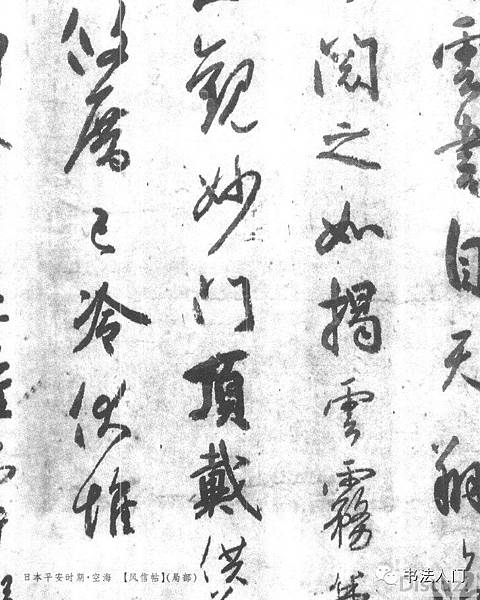 雲書自天翔
閱之如揭雲霧
觀妙門頂戴供
攸厝已冷伏惟
日本平安时期·空海 【风信帖】(局部)
书法入门